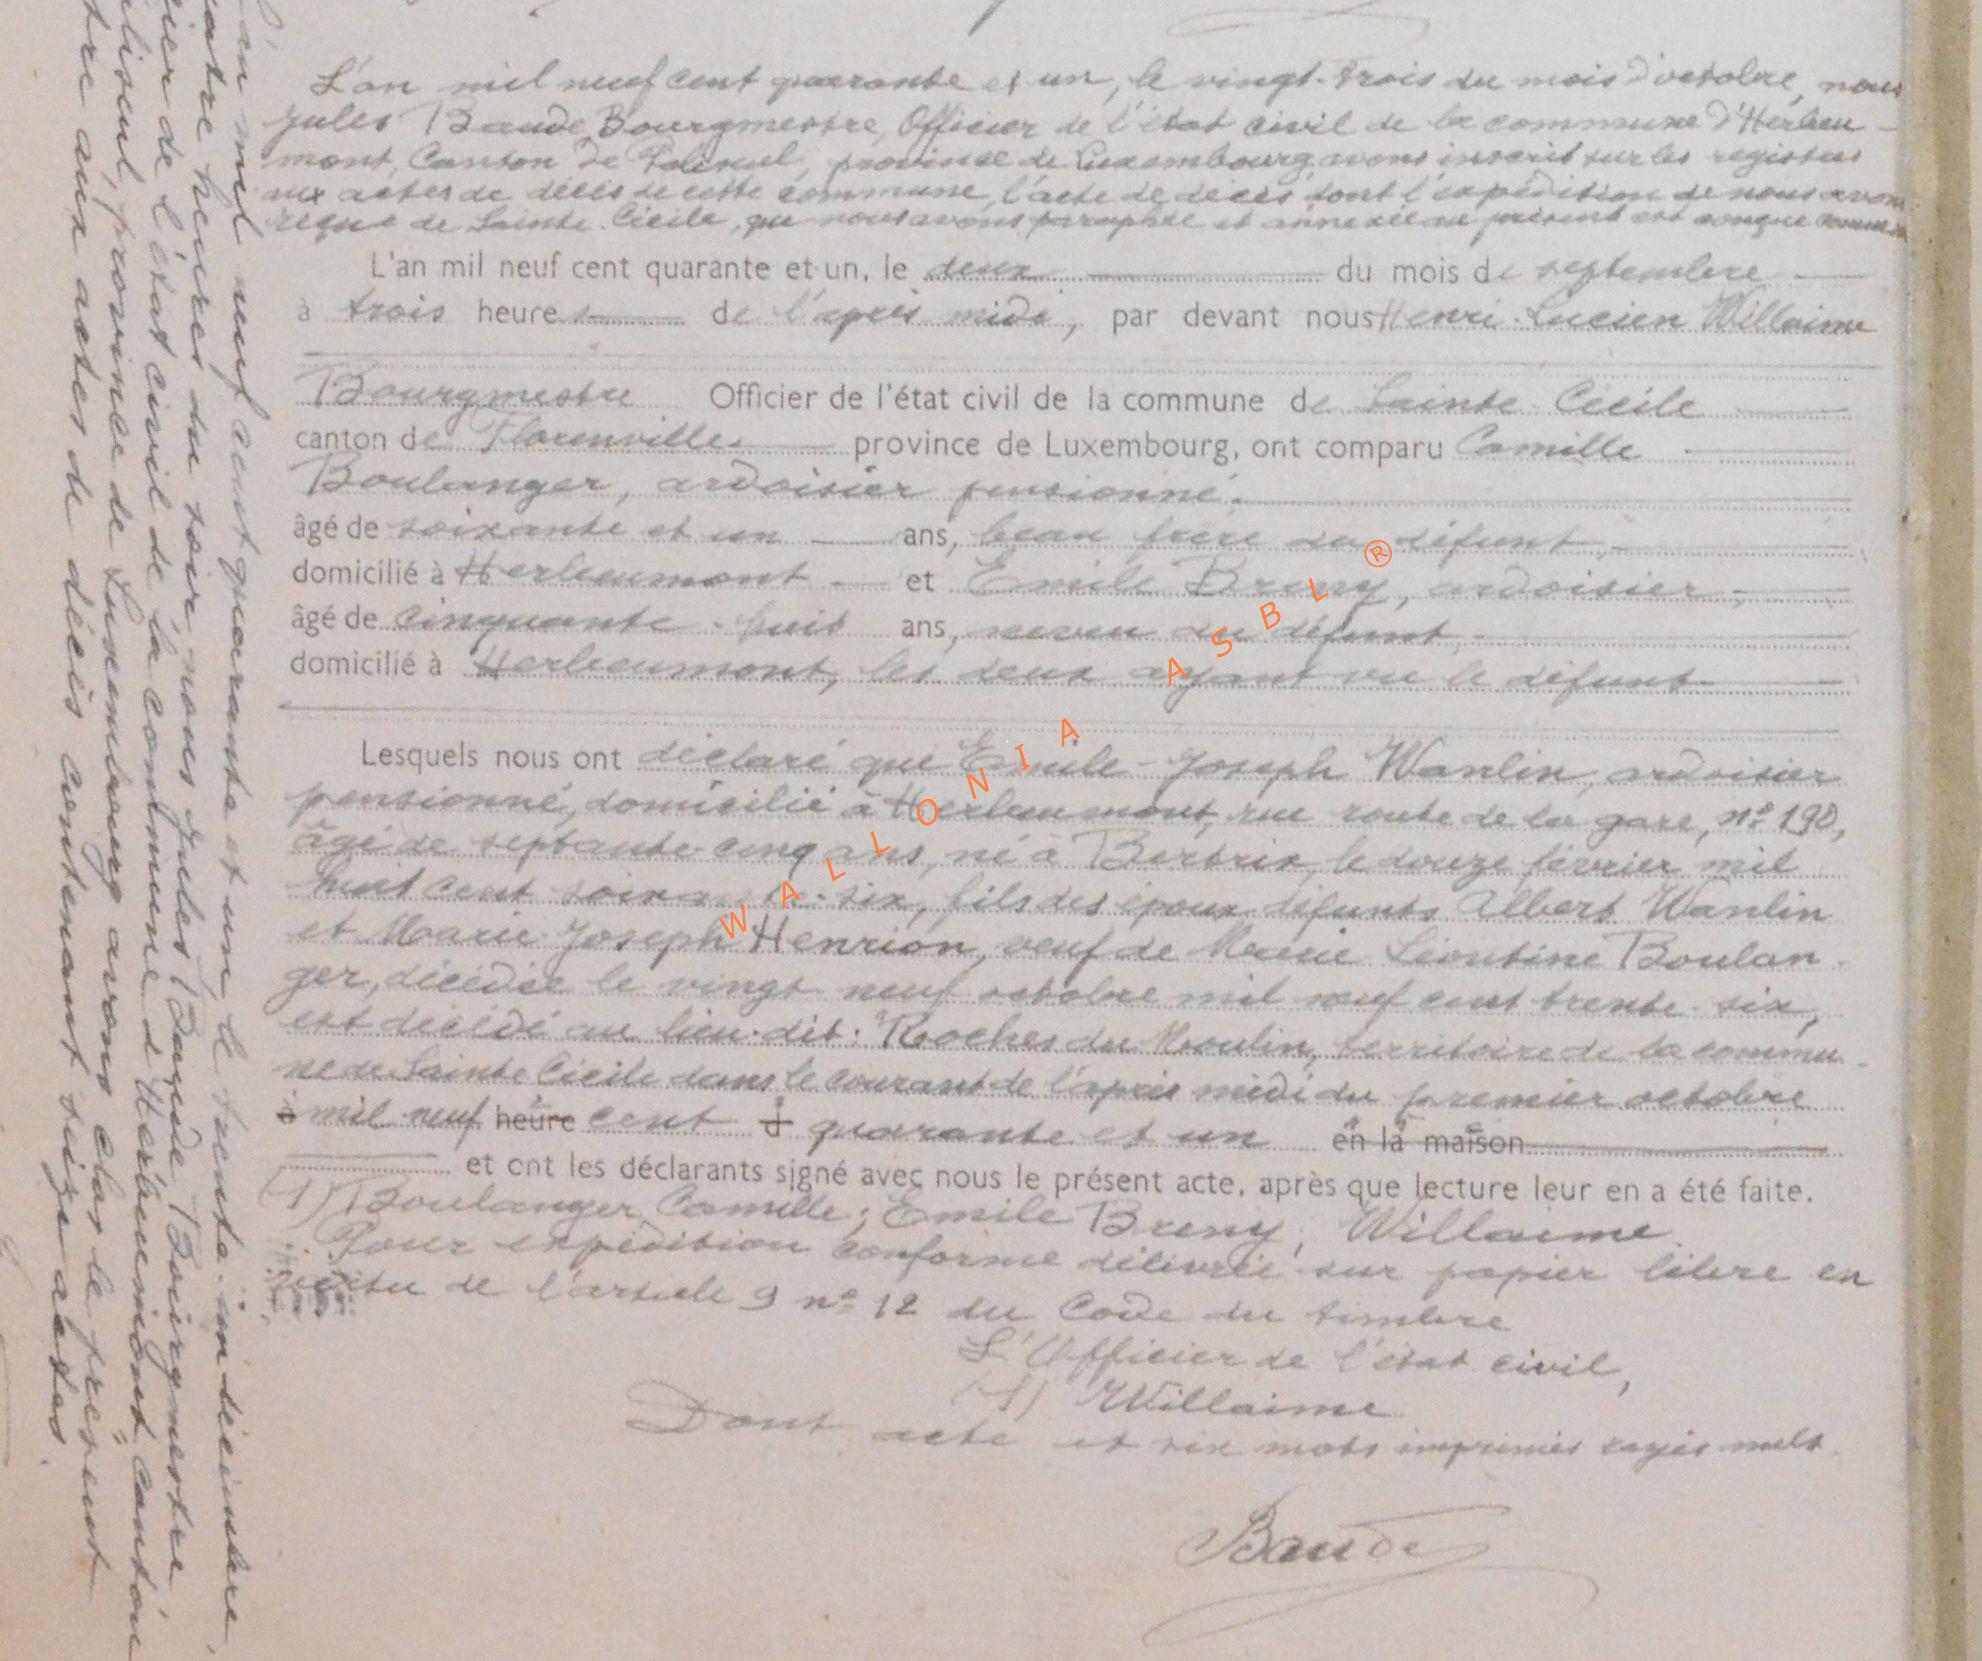 L'an mil neuf cent quarante et un, le vingt-trois du mois d'octobre, nous
Jules Baude, Bourgmestre, Officier de l'état civil de la commune d'Herbeu-
mont, Canton de Paliseul, province de Luxembourg, avons inscrit sur les registres
aux actes de décès de cette commune, l'acte de décès dont l'expédition de nous avons
reçue de Sainte-Cécile, que nous avons paraphée et annexée au présent est conçue comme
L'an mil neuf cent quarante et un, le deux du mois de septembre
à trois heures de l'après midi, par devant nous Henri-Lucien Willaime
Bourgmestre Officier de l'état civil de la commune de Sainte Cécile
canton de Florenville province de Luxembourg, ont comparu Camille
Boulanger, ardoisier pensionné,
âgé de soixante et un ans, beau frère du défunt,
domicilié à Herbeumont et Emile Breny, ardoisier,
âgé de cinquante-huit ans, neveu du défunt,
domicilié à Herbeumont, les deux ayant vu le défunt
Lesquels nous ont déclaré que Emile-Joseph Wanlin, ardoisier
pensionné, domicilié à Herbeumont, rue route de la gare, n° 190,
âgé de septante-cinq ans, né à Bertrix, le douze février mil
huit cent soixante-six, fils des époux défunts Albert Wanlin
et Marie-Joseph Henrion, veuf de Marie Léontine Boulan-
ger, décédée le vingt neuf octobre mil neuf cent trente-six,
est décédé au lieu-dit: "Roches du Moulin, territoire de la commu-
ne de Sainte Cécile dans le courant de l'après midi du premier octobre
à mil neuf heure cent d quarante et un en la maison
et ont les déclarants signé avec nous le présent acte, après que lecture leur en a été faite.
(1) Boulanger Camille; Emile Breny; Willaime.
Pour expédition conforme délivrée sur papier libre en
vertu de l'article 9 n° 12 du Code du timbre
L'Officier de l'état civil,
(1) Willaime
Dont acte et six mots imprimés rayés nuls.
Baude
L'an mil neuf cent quarante et un, le trente-un décembre,
quatre heures du soir, nous Jules Baude, Bourgmestre
officier de l'état civil de la commune d'Herbeumont, canton
Paliseul, province de Luxembourg avons clos le présent
registre aux actes de décès contenant seize actes.
WALLONIA ASBL ®